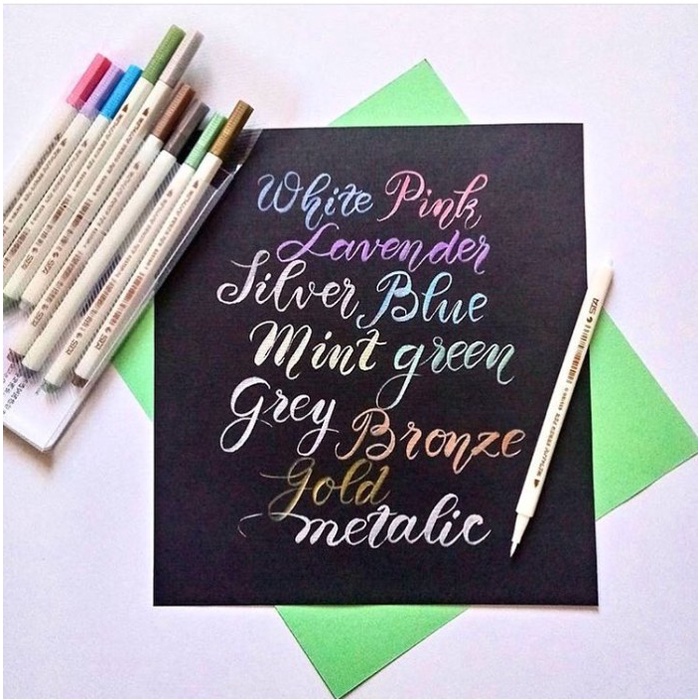 White Pink
Lavender
Silver Blue
Mint green
Grey Bronze
Gold
metalic